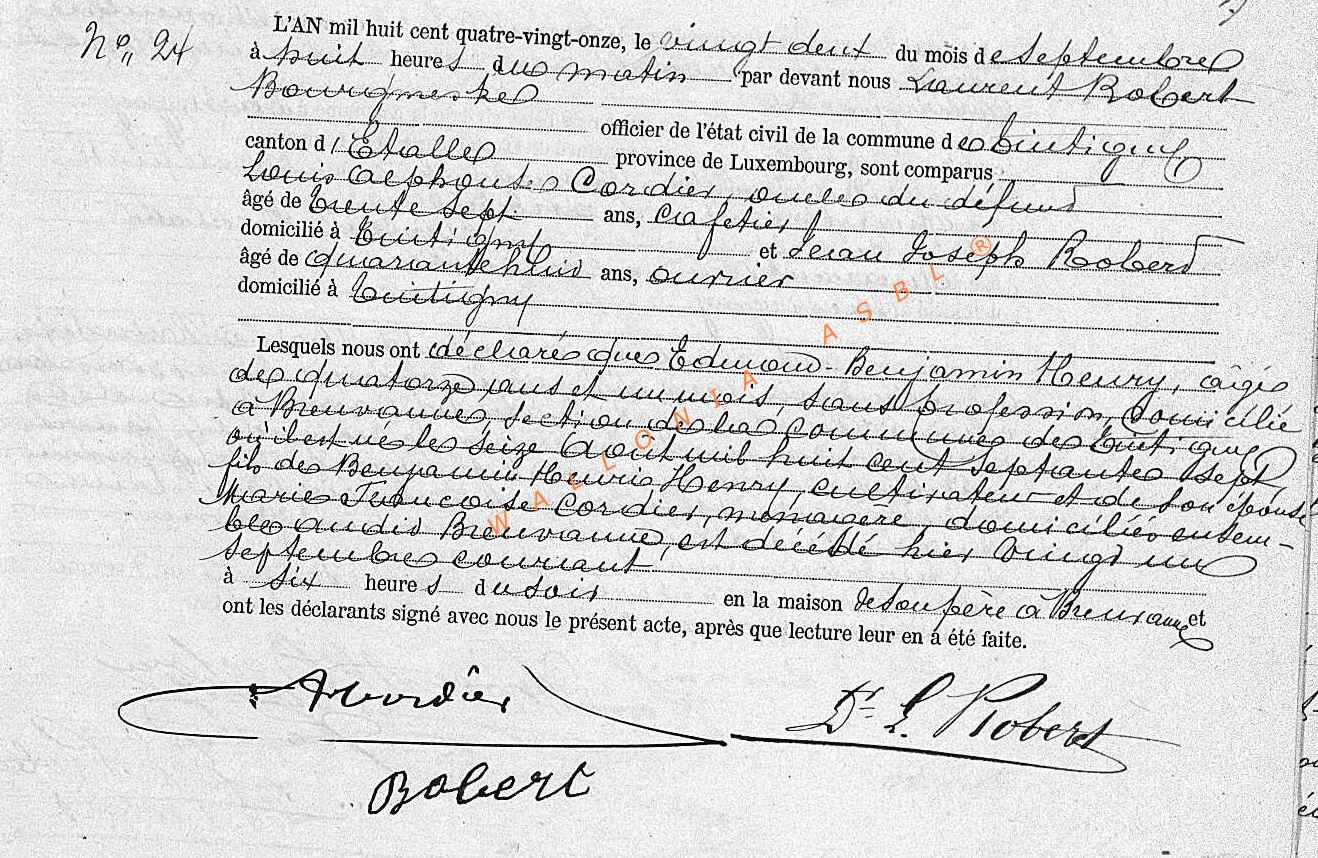 N° 24
L'AN mil huit cent quatre-vingt-onze, le vingt deux du mois de Septembre
à huit heures du matin par devant nous Laurent Robert
Bourgmestre
officier de l'état civil de la commune de Tintigny
canton d'Etalle province de Luxembourg, sont comparus
Louis Alphonse Cordier, oncle du défunt
âgé de trente sept ans, cafetier
domicilié à Tintigny et Jean Joseph Robert
âgé de quarante huit ans, ouvrier
domicilié à Tintigny
Lesquels nous ont déclaré que Edmond-Benjamin Henry, âgé
de quatorze ans et un mois, sans profession, domicilié
à Breuvanne, section de la commune de Tintigny
où il est né le seize Août mil huit cent septante sept,
fils de Benjamin Henri Henry, cultivateur et de son épouse
Marie Françoise Cordier, ménagère, domiciliés ensem-
ble audit Breuvanne, est décédé hier vingt un
septembre courant
à six heures du soir en la maison de son père à Breuvanne et
ont les déclarants signé avec nous le présent acte, après que lecture leur en a été faite.
WALLONIA ASBL ®
A Cordier
Dr L. Robert
Robert